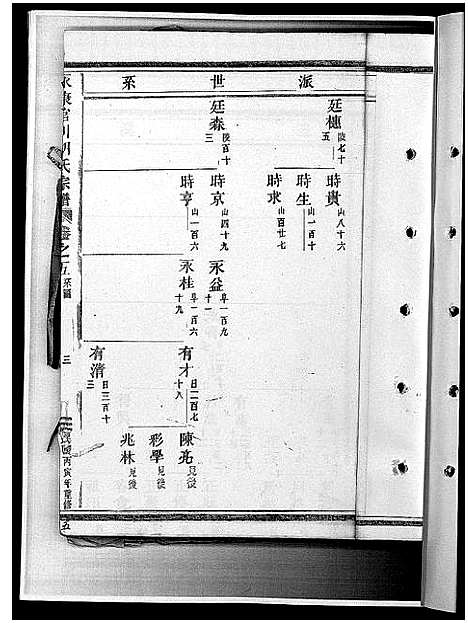 派世系
廷樁 陵七十五
廷森 陵百十三
時貴 山八十六
時生 山一百十
時求 山百廿七
時京 山四十九
時亨 山一百六
永益 阜一百九十一
永桂 阜一百六十九
有才 日二百七十八
有清 日三百十三
陳亮 見後
彩學 見後
兆林 見後
永康官川胡氏宗譜 卷之二五 系圖
三
民國丙寅年重修
五